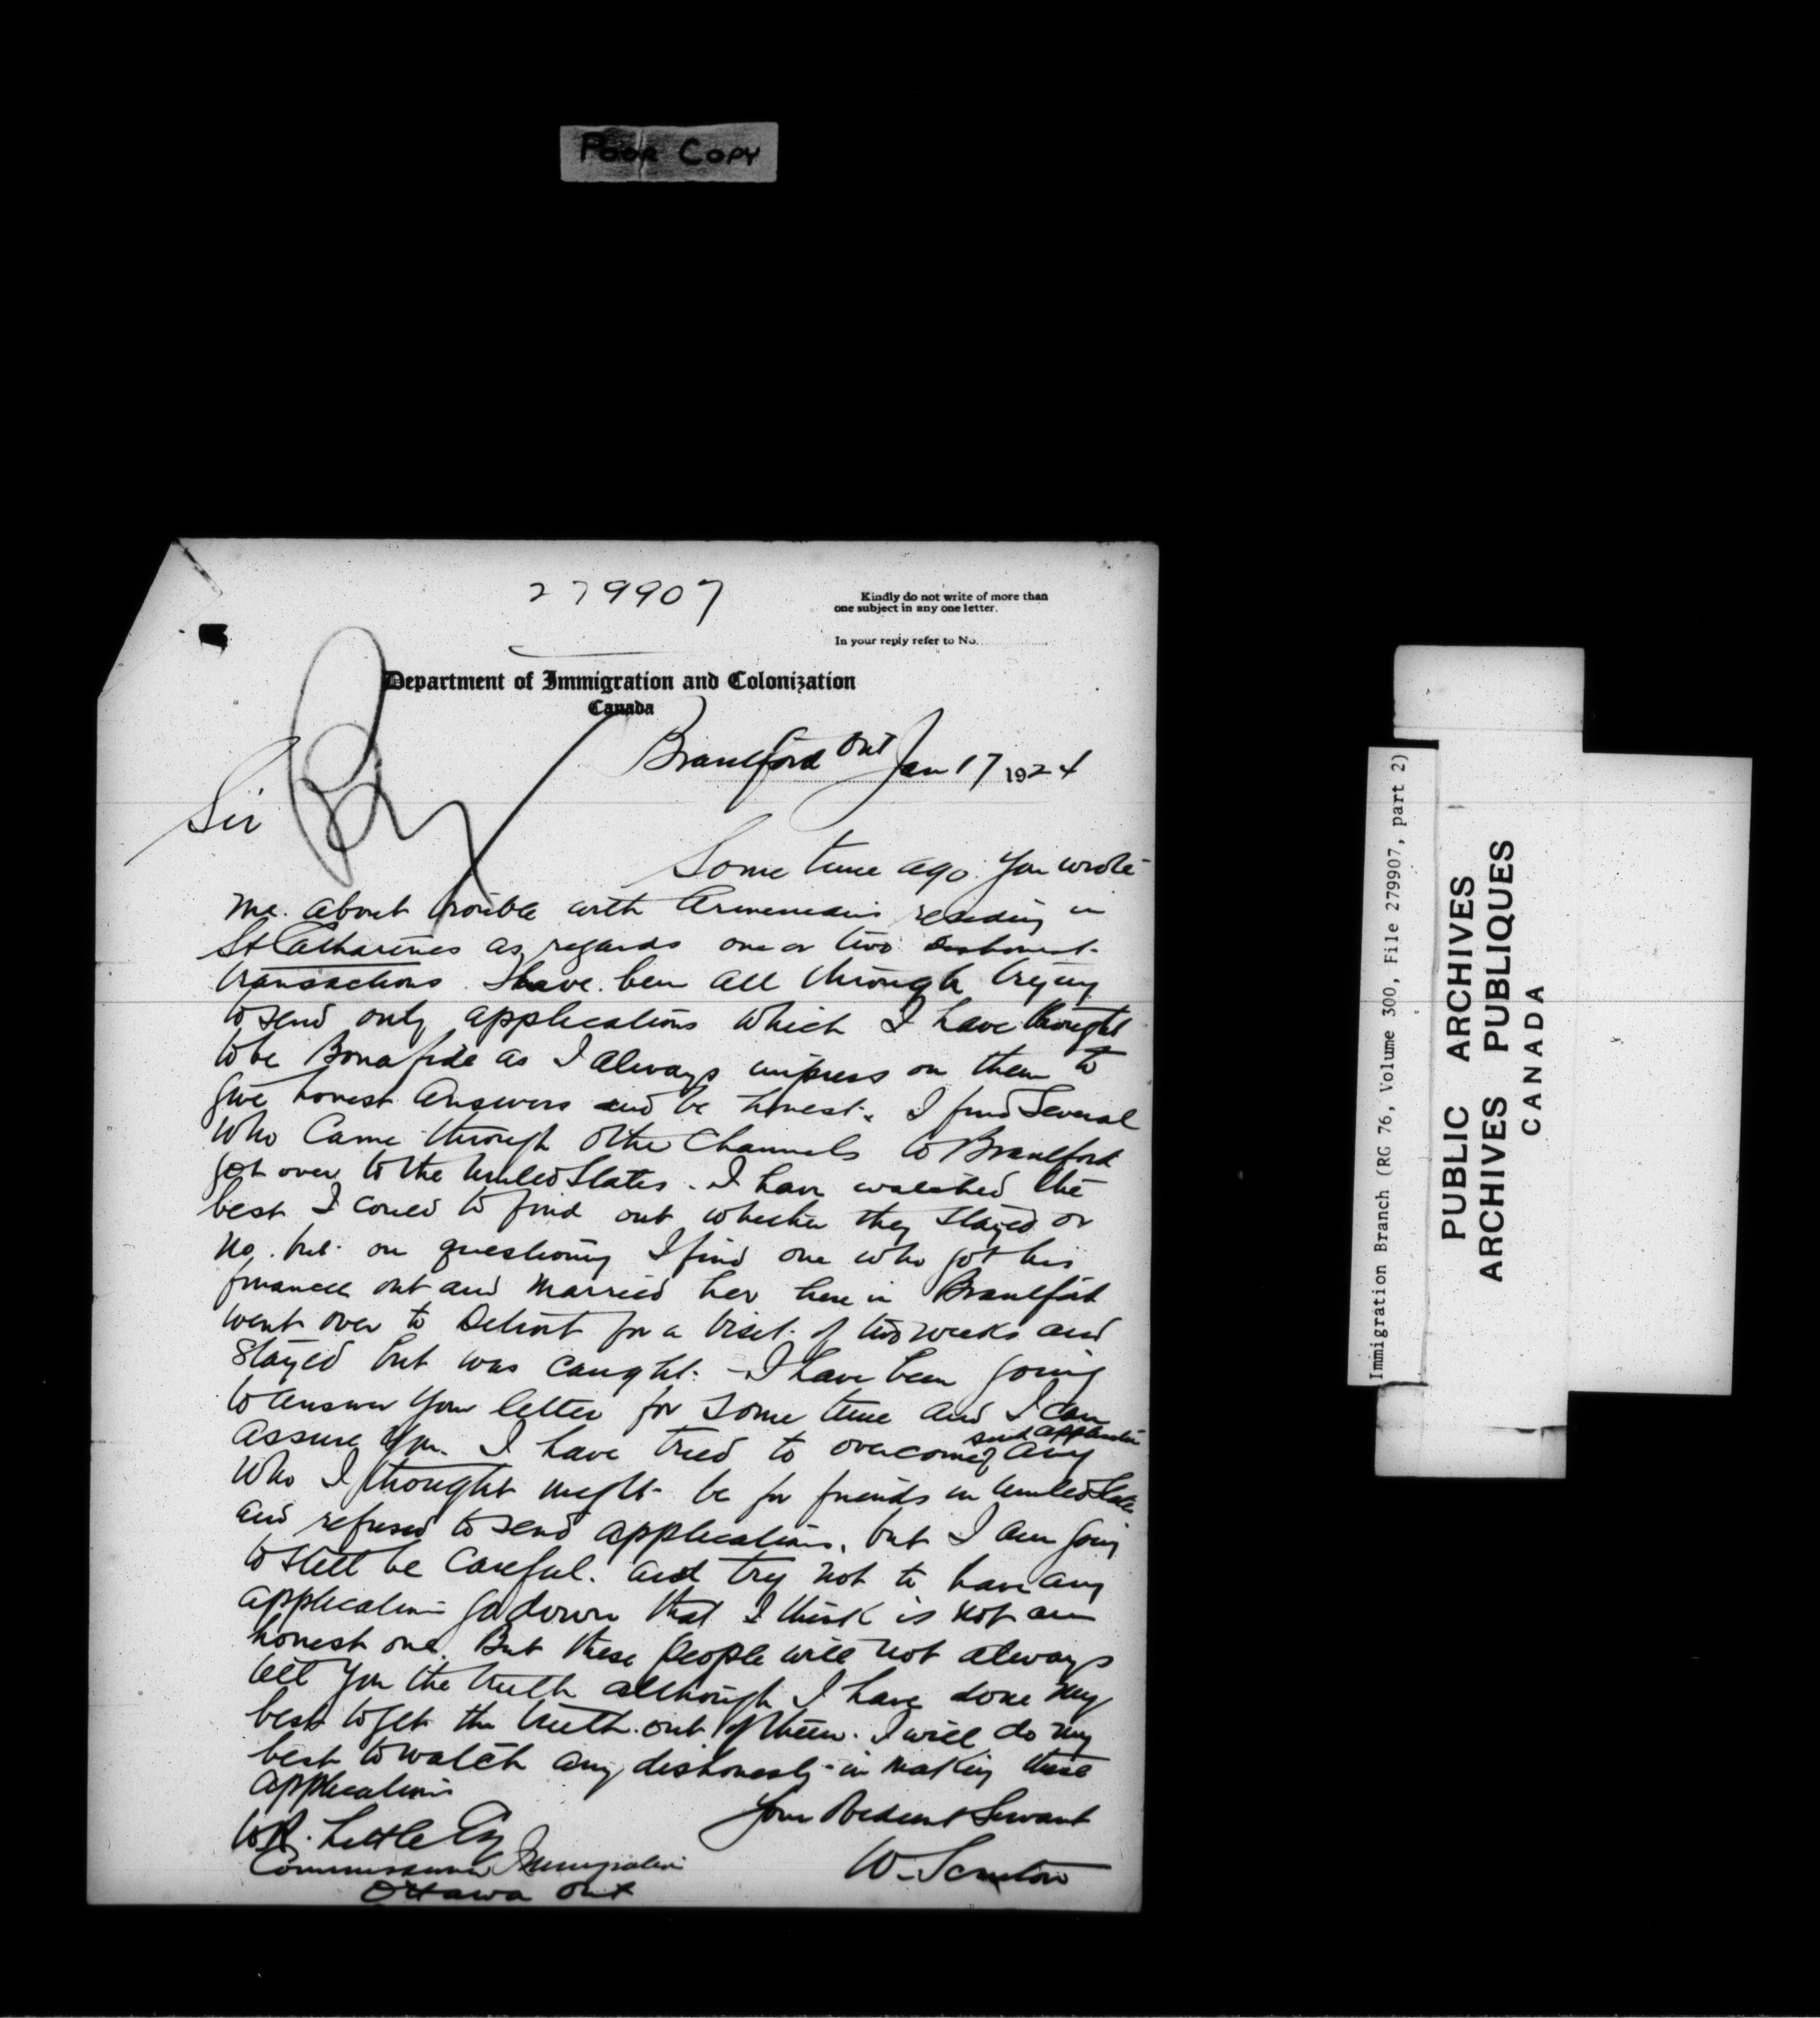 Poor Copy
279907
Kindly do not write of more than
one subject in any one letter.
In your reply refer to No.
Department of Immigration and Colonization
Canada
Brantford Ont Jan 17 1924
Sir
Some time ago you wrote
me about trouble with Armenians residing in
St Catharines as regards one or two dishonest
transactions. I have been all through trying
to send only applications which I have thought
to be Bonafide as I always impress on them to
give honest answers and be honest. I find several
who came through other channels to Brantford
got over to the United States. I have watched the
best I could to find out whether they stayed or
no. but on questioning I find one who got his
financee out and married her here in Brantford
went over to Detroit for a visit of two weeks and
stayed but was caught. I have been going
to answer your letter for some time and I can
assure you I have tried to overcome any
such application
who I thought might be for friends in United States
and refused to send applications, but I am going
to still be careful. and try not to have any
application go down that I think is not an
honest one. But these people will not always
tell you the truth although I have done my
best to get the truth out of them. I will do my
best to watch any dishonesty in making these
applications
Your Obedient Servant
W. Scruton
W.R. Little Esq
Commissioner Immigration
Ottawa Ont
Immigration Branch (RG 76, Volume 300, File 279907, part 2)
PUBLIC ARCHIVES
ARCHIVES PUBLIQUES
CANADA